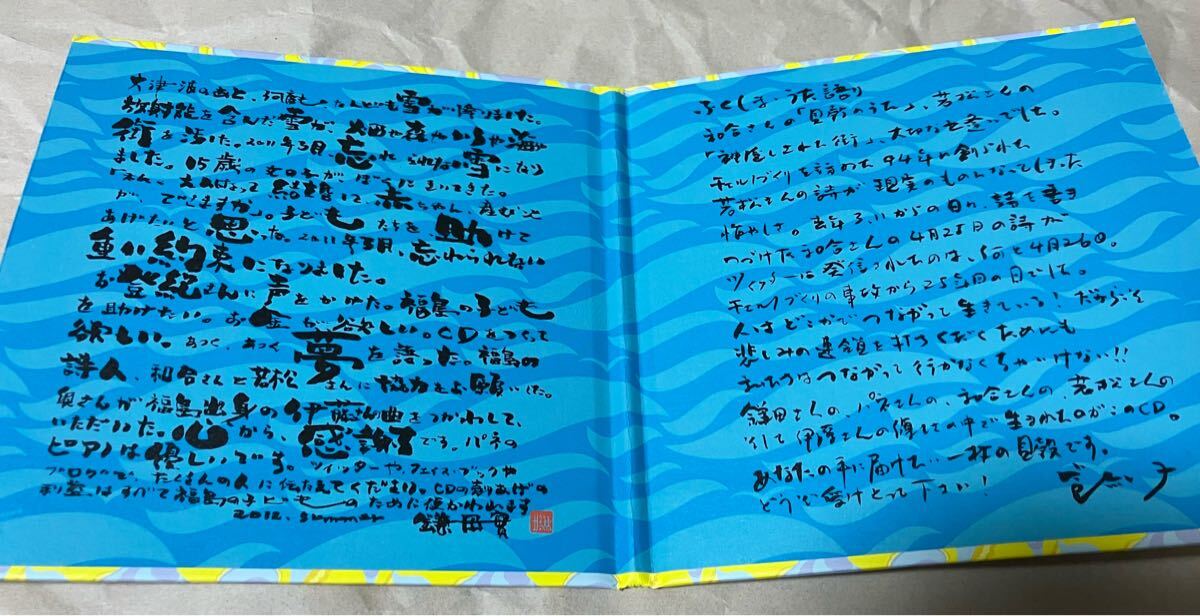 大津波のあと、何度も、なんども雪が降りました。
放射能を含んだ雪が、畑や森や川や海や
街を汚した。2011年3月忘れられない雪になり
ました。15歳の女の子がぼくにきいてきた。
「私、大人になって結婚して、赤ちゃん、産むこと
が、できますか」。子どもたちを助けて
あげたいと思った。2011年3月、忘れられない
重い約束になりました。
お登紀さんに声をかけた。福島の子ども
を助けたい。お金が欲しい。CDをつくって
欲しい。あつく、あつく夢を語った。福島の
詩人、和合さんと若松さんに協力をお願いした。
奥さんが福島出身の伊藤さん曲をつかわして、
いただいた。心から、感謝です。パネの
ピアノは優しいです。ツイッターやフェイスブックや
ブログで、たくさんの人に伝えてください。CDの売りあげの
利益はすべて福島の子どものために使かわれます
2012. summer 鎌田實
ふくしま・うた語り
和合さんの「貝殻のうた」、若松さんの
「神隠しされた街」、大切な出逢いでした。
チェルノブイリを詩めた94年に創られた
若松さんの詩が現実のものになってしまった
悔やしさ。去年3.11からの日々、詩を書き
つづけた和合さんの4月25日の詩が
ツイッターに発信されたのは、何と4月26日。
チェルノブイリの事故から25年目の日でした。
人はどこかでつながって生きている! だからこそ
悲しみの連鎖を打ちくだくためにも
私たちはつながって行かなくちゃいけない!!
鎌田さんの、パネさんの、和合さんの、若松さんの
そして伊藤さんの縁しの中で生まれたのがこのCD。
あなたの手に届けたい一枚の貝殻です。
どうぞ受けとって下さい!
登紀子